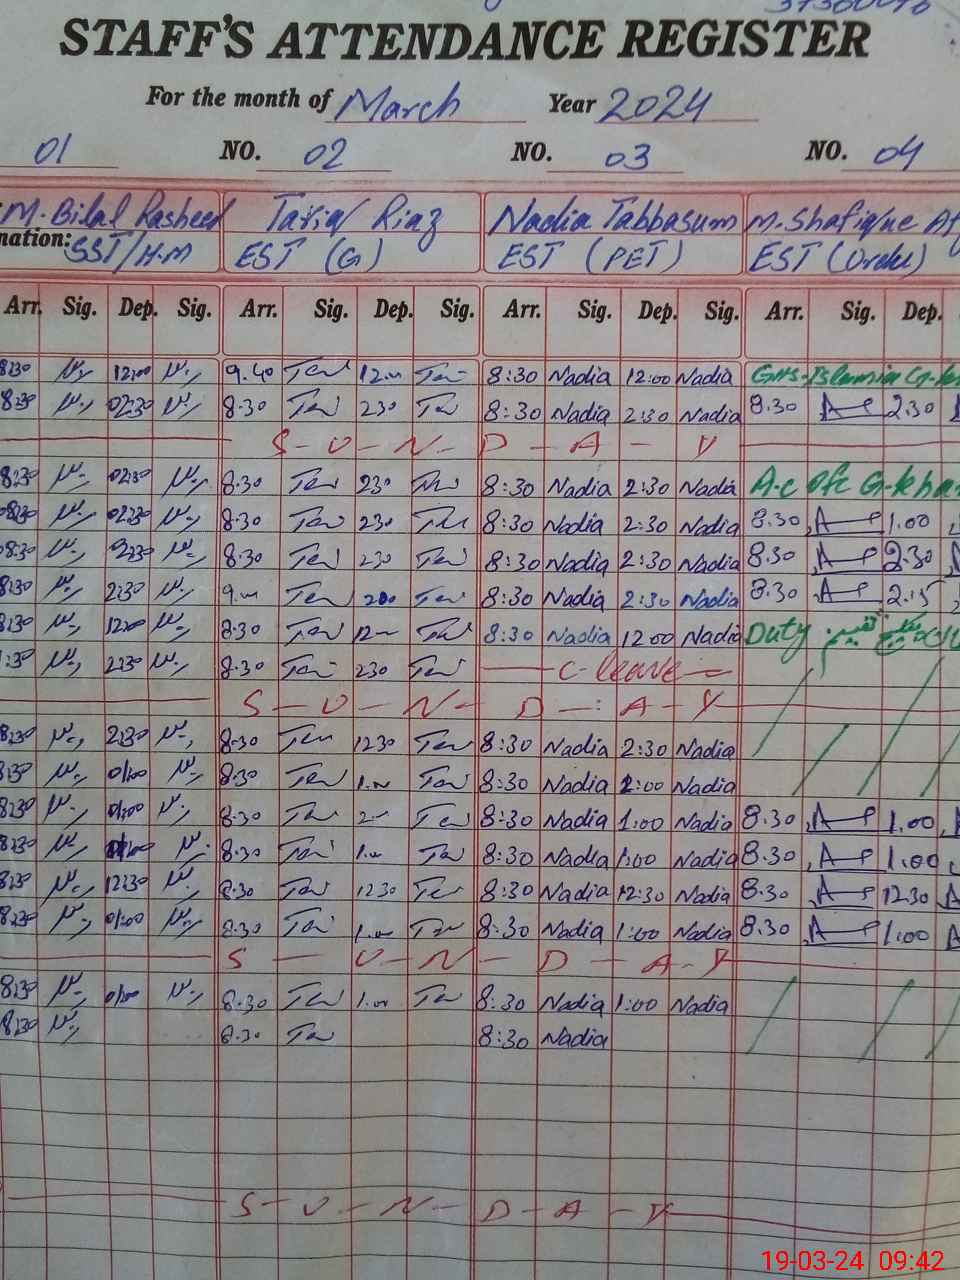 STAFF'S ATTENDANCE REGISTER
For the month of March Year 2024
01 NO. 02 NO. 03 NO. 04
M. Bilal Rasheed Tariq Riaz Nadia Tabbasum M. Shafique
nation: SST/H.M EST (G) EST (PET) EST (Urdu)
Arr. Sig. Dep. Sig. Arr. Sig. Dep. Sig. Arr. Sig. Dep. Sig. Arr. Sig. Dep.
8:30 12:00 9.40 12.00 8:30 Nadia 12:00 Nadia GHS-Islamia G-kh
8:30 02:30 8.30 230 8:30 Nadia 2:30 Nadia 8.30 2.30
S-U-N-D-A-Y
8:30 02:30 8.30 230 8:30 Nadia 2:30 Nadia A.c Ofc G-kha
08:30 02:30 8.30 230 8:30 Nadia 2:30 Nadia 8.30 1.00
08:30 02:30 8.30 230 8:30 Nadia 2:30 Nadia 8.30 2.30
8:30 2:30 9.00 200 8:30 Nadia 2:30 Nadia 8.30 2.15
8:30 12:00 8.30 12 8:30 Nadia 12 00 Nadia Duty
:30 2:30 8.30 230 C-leave
S-U-N-D-A-Y
8:30 2:30 8.30 1230 8:30 Nadia 2:30 Nadia
8:30 01:00 8.30 1.00 8:30 Nadia 2:00 Nadia
8:30 01:00 8.30 8:30 Nadia 1:00 Nadia 8.30 1.00
8:30 01:00 8.30 1.00 8:30 Nadia 1:00 Nadia 8.30 1.00
8:30 12:30 8.30 1230 8:30 Nadia 12:30 Nadia 8.30 1230
8:30 01:00 8.30 1.00 8:30 Nadia 1:00 Nadia 8.30 1.00
S-U-N-D-A-Y
8:30 01:00 8.30 1.00 8:30 Nadia 1:00 Nadia
8:30 8.30 8:30 Nadia
S-U-N-D-A-Y
19-03-24 09:42